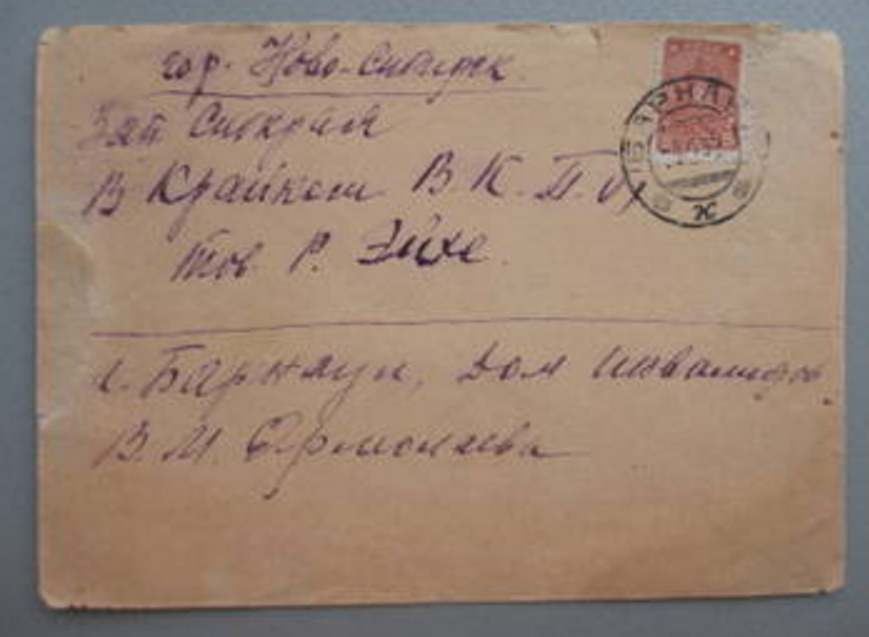 гор. Ново-Сибирск
Зап Сибкрая
В Крайком В К. П.
тов. Р. Эйхе.
г. Барнаул, Дом Инвалидов.
В. М.
БАРНАУЛ
ж